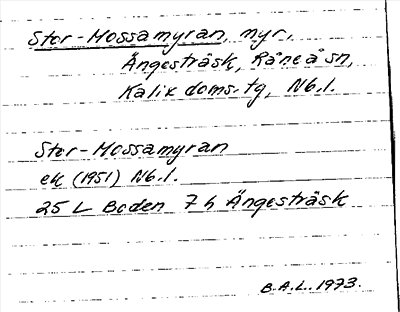 Stor-Mossamyran, myr,
Ängesträsk, Råneå sn,
Kalix doms.tg, Nb.l.
Stor-Mossamyran
ek (1951) Nb.l.
25 L Boden 7 h Ängesträsk
B.A.L. 1973.